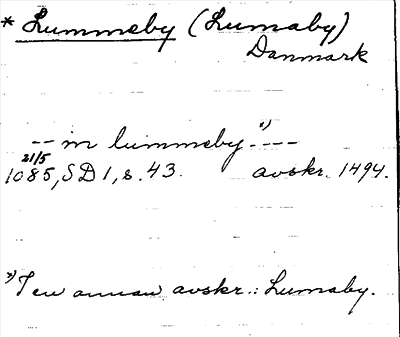 * Lummeby (Lumaby)
Danmark
-- in lummeby.x) ---
21/5
1085, SD 1, s. 43. avskr. 1494.
x) I en annan avskr.: Lumaby.